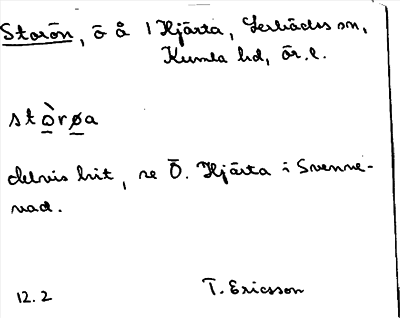 Storön, ö å l Hjärta, Lerbäcks sn,
Kumla hd, ör. l.
stòrøa
delvis hit, se Ö. Hjärta i Svenne-
vad.
12.2 T. Ericsson